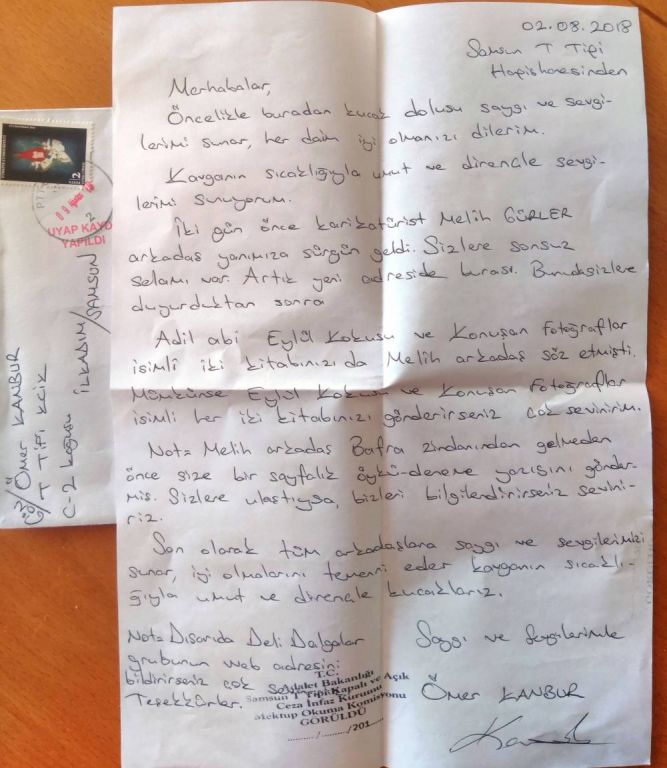 02.08.2018
Samsun T Tipi
Hapishanesinden
Merhabalar,
Öncelikle buradan kucak dolusu saygı ve sevgi-
lerimi sunar, her daim iyi olmanızı dilerim.
Kavganın sıcaklığıyla umut ve dirençle sevgi-
lerimi sunuyorum.
İki gün önce karikatürist Melih GÜRLER
arkadaş yanımıza sürgün geldi. Sizlere sonsuz
selamı var. Artık yeni adreside burası. Bunuda sizlere
duyurduktan sonra
Adil abi Eylül Kokusu ve Konuşan Fotoğraflar
isimli iki kitabınızı da Melih arkadaş söz etmişti.
Mümkünse Eylül Kokusu ve Konuşan Fotoğraflar
isimli her iki kitabınızı gönderirseniz çok sevinirim.
Not: Melih arkadaş Bafra zindanından gelmeden
önce size bir sayfalık öykü-deneme yazısını gönder-
miş. Sizlere ulaştıysa, bizleri bilgilendirirseniz sevini-
riz.
Son olarak tüm arkadaşlara saygı ve sevgilerimizi
sunar, iyi olmalarını temenni eder kavganın sıcaklı-
ğıyla umut ve dirençle kucaklarız.
Not: Dışarıda Deli Dalgalar
grubunun web adresini
bildirirseniz çok
Teşekkürler.
Saygı ve Sevgilerimle
Ömer KANBUR
T.C.
Adalet Bakanlığı
Samsun T Tipi Kapalı ve Açık
Ceza İnfaz Kurumu
Mektup Okuma Komisyonu
GÖRÜLDÜ
......../......../201......
UYAP KAYD
YAPILDI
Ömer KANBUR
T TİPİ KCİK
C-2 Koğuşu İLKADIM/SAMSUN